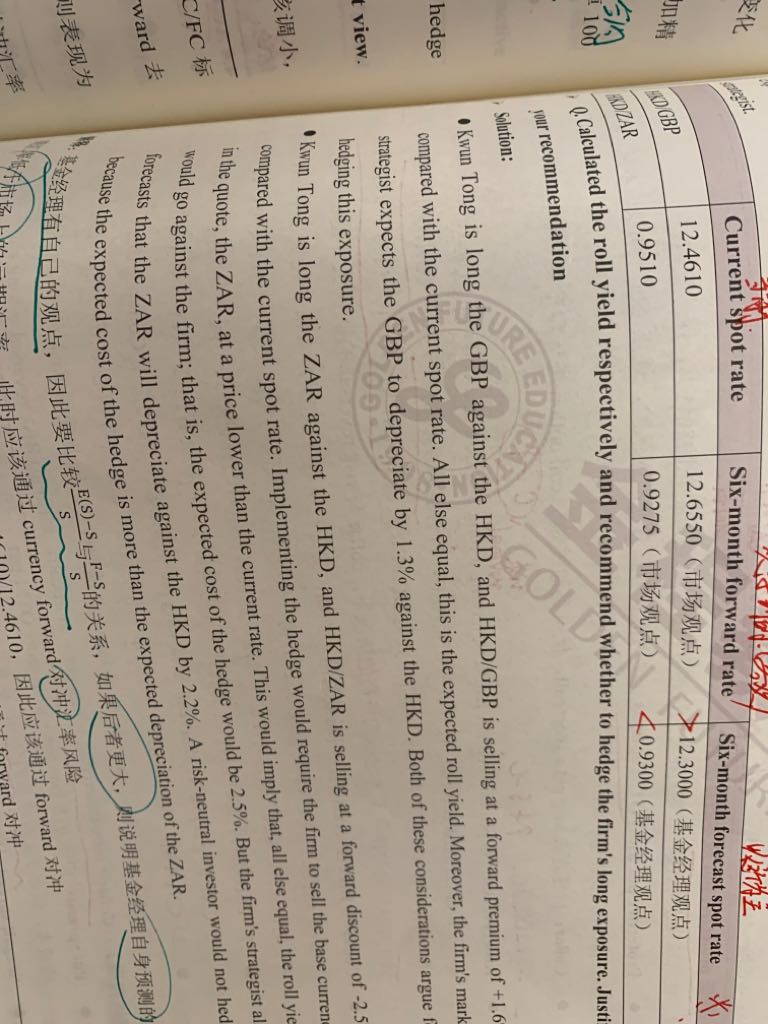 变化
加精
100
hedge
t view.
该调小，
C/FC 标
ward 去
则表现为
冲汇率
strategist.
Current spot rate Six-month forward rate Six-month forecast spot rate
HKD/GBP 12.4610 12.6550（市场观点） > 12.3000（基金经理观点）
HKD/ZAR 0.9510 0.9275（市场观点） < 0.9300（基金经理观点）
Q. Calculated the roll yield respectively and recommend whether to hedge the firm's long exposure. Justi
your recommendation
Solution:
● Kwun Tong is long the GBP against the HKD, and HKD/GBP is selling at a forward premium of +1.6
compared with the current spot rate. All else equal, this is the expected roll yield. Moreover, the firm's mark
strategist expects the GBP to depreciate by 1.3% against the HKD. Both of these considerations argue f
hedging this exposure.
● Kwun Tong is long the ZAR against the HKD, and HKD/ZAR is selling at a forward discount of -2.5
compared with the current spot rate. Implementing the hedge would require the firm to sell the base curren
in the quote, the ZAR, at a price lower than the current rate. This would imply that, all else equal, the roll yie
would go against the firm; that is, the expected cost of the hedge would be 2.5%. But the firm's strategist al
forecasts that the ZAR will depreciate against the HKD by 2.2%. A risk-neutral investor would not hed
because the expected cost of the hedge is more than the expected depreciation of the ZAR.
基金经理有自己的观点，因此要比较 E(S)-S/S 与 F-S/S 的关系，如果后者更大，则说明基金经理自身预测的
市场上的远期汇率，此时应该通过 currency forward 对冲汇率风险
4610)/12.4610，因此应该通过 forward 对冲
forward 对冲
GOLDEN FUTURE EDUCA